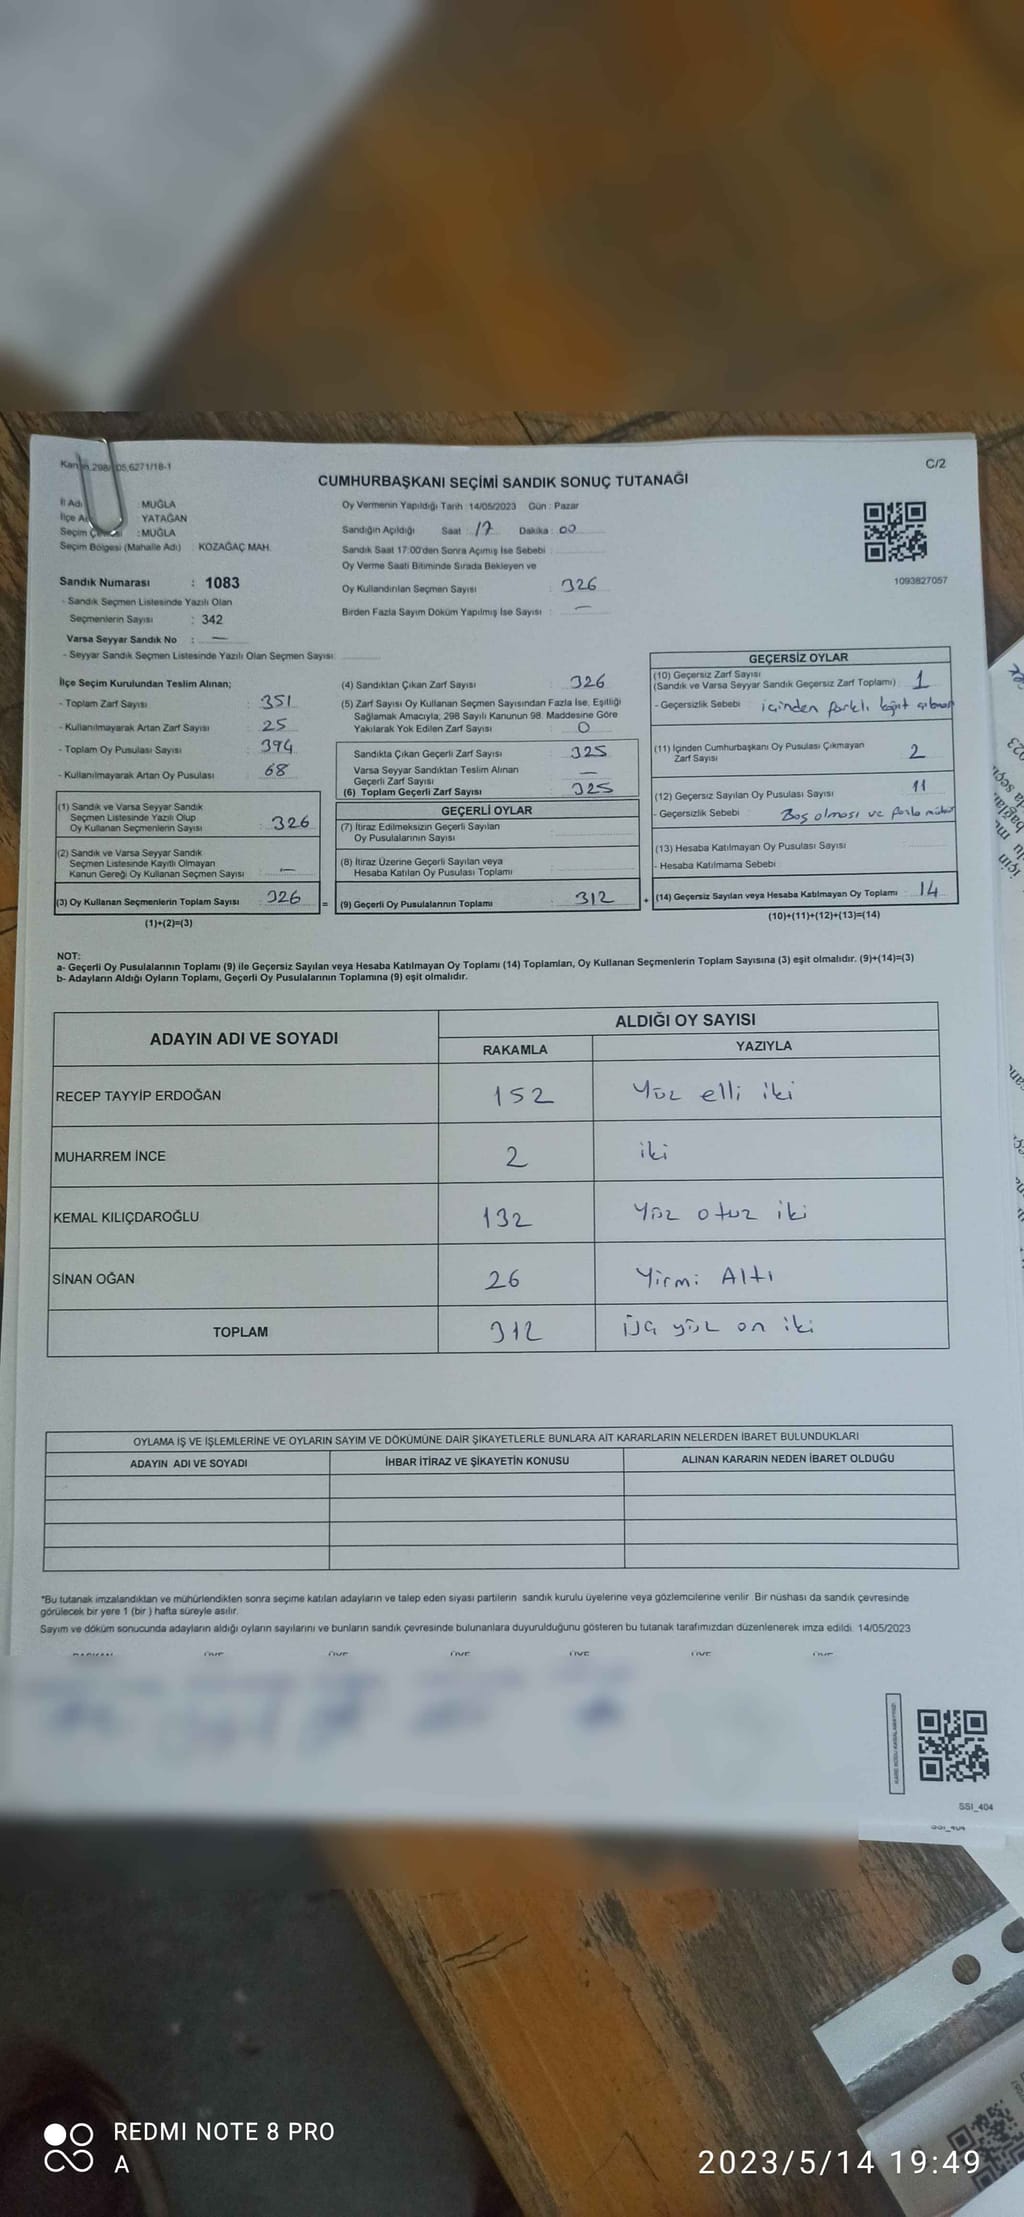 C/2
CUMHURBAŞKANI SEÇİMİ SANDIK SONUÇ TUTANAĞI
İl Adı : MUĞLA
İlçe : YATAĞAN
Seçim : MUĞLA
Seçim Bölgesi (Mahalle Adı) : KOZAĞAÇ MAH.
Oy Vermenin Yapıldığı Tarih : 14/05/2023 Gün : Pazar
Sandığın Açıldığı Saat : 17 Dakika : 00
Sandık Saat 17:00'den Sonra Açımış İse Sebebi :
Oy Verme Saati Bitiminde Sırada Bekleyen ve
Oy Kullandırılan Seçmen Sayısı : 326
Birden Fazla Sayım Döküm Yapılmış İse Sayısı : —
1093827057
Sandık Numarası : 1083
- Sandık Seçmen Listesinde Yazılı Olan
Seçmenlerin Sayısı : 342
Varsa Seyyar Sandık No : —
- Seyyar Sandık Seçmen Listesinde Yazılı Olan Seçmen Sayısı:
İlçe Seçim Kurulundan Teslim Alınan;
- Toplam Zarf Sayısı : 351
- Kullanılmayarak Artan Zarf Sayısı : 25
- Toplam Oy Pusulası Sayısı : 394
- Kullanılmayarak Artan Oy Pusulası : 68
(1) Sandık ve Varsa Seyyar Sandık
Seçmen Listesinde Yazılı Olup
Oy Kullanan Seçmenlerin Sayısı : 326
(2) Sandık ve Varsa Seyyar Sandık
Seçmen Listesinde Kayıtlı Olmayan
Kanun Gereği Oy Kullanan Seçmen Sayısı : —
(3) Oy Kullanan Seçmenlerin Toplam Sayısı : 326
(1)+(2)=(3)
(4) Sandıktan Çıkan Zarf Sayısı : 326
(5) Zarf Sayısı Oy Kullanan Seçmen Sayısından Fazla İse, Eşitliği
Sağlamak Amacıyla, 298 Sayılı Kanunun 98. Maddesine Göre
Yakılarak Yok Edilen Zarf Sayısı : 0
Sandıkta Çıkan Geçerli Zarf Sayısı : 325
Varsa Seyyar Sandıktan Teslim Alınan
Geçerli Zarf Sayısı : —
(6) Toplam Geçerli Zarf Sayısı : 325
GEÇERLİ OYLAR
(7) İtiraz Edilmeksizin Geçerli Sayılan
Oy Pusulalarının Sayısı :
(8) İtiraz Üzerine Geçerli Sayılan veya
Hesaba Katılan Oy Pusulası Toplamı :
= (9) Geçerli Oy Pusulalarının Toplamı : 312
GEÇERSİZ OYLAR
(10) Geçersiz Zarf Sayısı
(Sandık ve Varsa Seyyar Sandık Geçersiz Zarf Toplamı) : 1
- Geçersizlik Sebebi : içinden farklı kağıt çıkması
(11) İçinden Cumhurbaşkanı Oy Pusulası Çıkmayan
Zarf Sayısı : 2
(12) Geçersiz Sayılan Oy Pusulası Sayısı : 11
- Geçersizlik Sebebi : Boş olması ve fazla mühür
(13) Hesaba Katılmayan Oy Pusulası Sayısı :
- Hesaba Katılmama Sebebi :
+ (14) Geçersiz Sayılan veya Hesaba Katılmayan Oy Toplamı : 14
(10)+(11)+(12)+(13)=(14)
NOT:
a- Geçerli Oy Pusulalarının Toplamı (9) ile Geçersiz Sayılan veya Hesaba Katılmayan Oy Toplamı (14) Toplamları, Oy Kullanan Seçmenlerin Toplam Sayısına (3) eşit olmalıdır. (9)+(14)=(3)
b- Adayların Aldığı Oyların Toplamı, Geçerli Oy Pusulalarının Toplamına (9) eşit olmalıdır.
ADAYIN ADI VE SOYADI ALDIĞI OY SAYISI
RAKAMLA YAZIYLA
RECEP TAYYİP ERDOĞAN 152 Yüz elli iki
MUHARREM İNCE 2 iki
KEMAL KILIÇDAROĞLU 132 Yüz otuz iki
SİNAN OĞAN 26 Yirmi Altı
TOPLAM 312 Üç yüz on iki
OYLAMA İŞ VE İŞLEMLERİNE VE OYLARIN SAYIM VE DÖKÜMÜNE DAİR ŞİKAYETLERLE BUNLARA AİT KARARLARIN NELERDEN İBARET BULUNDUKLARI
ADAYIN ADI VE SOYADI İHBAR İTİRAZ VE ŞİKAYETİN KONUSU ALINAN KARARIN NEDEN İBARET OLDUĞU
*Bu tutanak imzalandıktan ve mühürlendikten sonra seçime katılan adayların ve talep eden siyasi partilerin sandık kurulu üyelerine veya gözlemcilerine verilir. Bir nüshası da sandık çevresinde
görülecek bir yere 1 (bir ) hafta süreyle asılır.
Sayım ve döküm sonucunda adayların aldığı oyların sayılarını ve bunların sandık çevresinde bulunanlara duyurulduğunu gösteren bu tutanak tarafımızdan düzenlenerek imza edildi. 14/05/2023
SSI_404
REDMI NOTE 8 PRO
A
2023/5/14 19:49